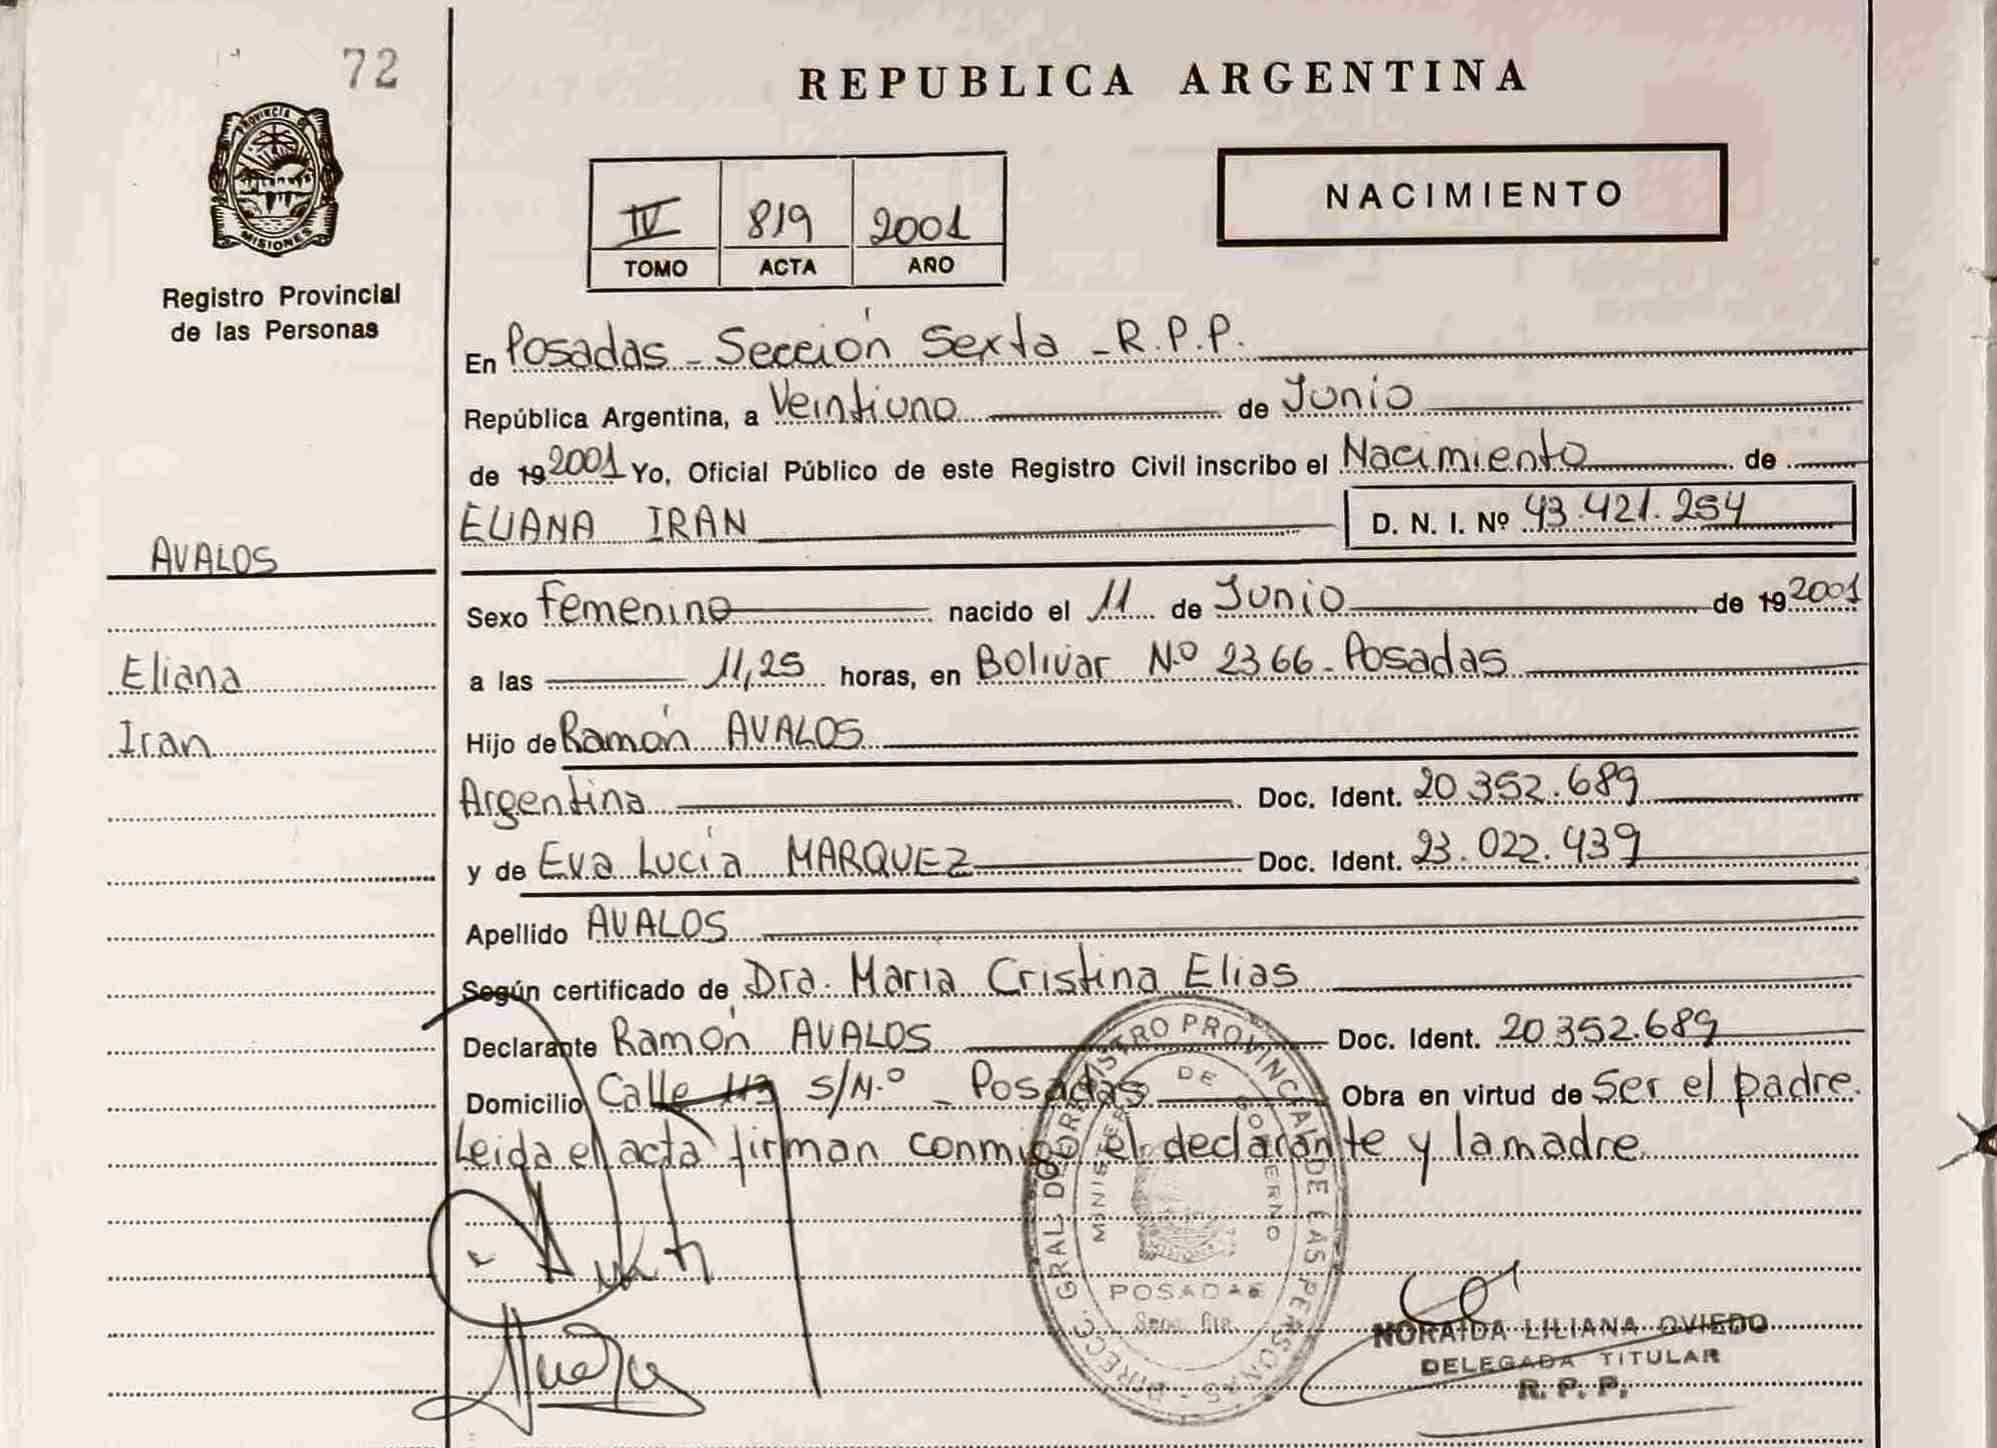 72
PROVINCIA DE
MISIONES
Registro Provincial
de las Personas
REPUBLICA ARGENTINA
NACIMIENTO
IV 819 2001
TOMO ACTA AÑO
En Posadas - Sección Sexta - R.P.P.
República Argentina, a Veintiuno de Junio
de 19 2001 Yo, Oficial Público de este Registro Civil inscribo el Nacimiento de
ELIANA IRAN D. N. I. Nº 43.421.254
AVALOS
Sexo Femenino nacido el 11 de Junio de 19 2001
Eliana
a las 11,25 horas, en Bolivar N.º 2366 - Posadas
Iran
Hijo de Ramón AVALOS
Argentina Doc. Ident. 20.352.689
y de Eva Lucía MARQUEZ Doc. Ident. 23.022.439
Apellido AVALOS
Según certificado de Dra. Maria Cristina Elias
Declarante Ramón AVALOS Doc. Ident. 20.352.689
Domicilio Calle 113 S/N.º - Posadas Obra en virtud de Ser el padre.
Leida el acta firman conmigo el declarante y la madre
DIRECC. GRAL. DEL REGISTRO PROVINCIAL DE LAS PERSONAS
MINISTERIO DE GOBIERNO
POSADAS
NORAIDA LILIANA OVIEDO
DELEGADA TITULAR
R. P. P.